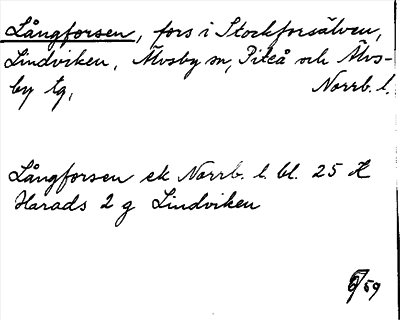 Långforsen, fors i Stockforsälven,
Lindviken, Älvsby sn, Piteå och Älvs-
by tg, Norrb. l.
Långforsen ek Norrb. l. bl. 25 H
Harads 2 g Lindviken
/59